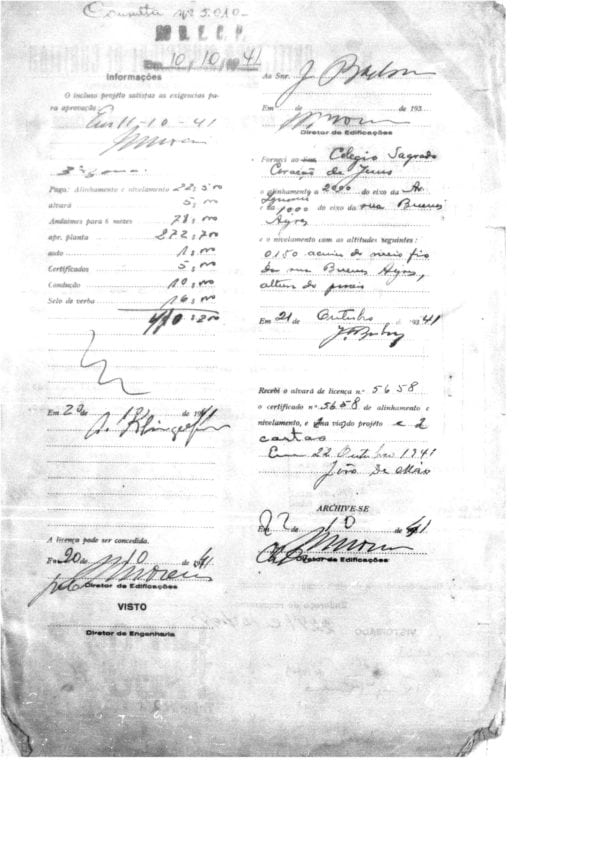 Consulta nº 5.010-
D. E. C. P.
Em 10/10/1941
Informações
O incluso projéto satisfaz as exigencias pa-
ra aprovação
Em 11-10-41
Paga: Alinhamento e nivelamento 22,500
alvará 5,000
Andaimes para 6 mezes
apr. planta 272,700
auto 1,000
Certificados 5,000
Condução 10,000
Selo de verba 16,000
410:200
Em 20 de 10 de 1941
A licença pode ser concedida.
Em 20 de 10 de 41
Diretor de Edificações
VISTO
Diretor de Engenharia
Ao Snr. J.
Em de de 193
Diretor de Edificações
Forneci ao Colegio Sagrado
Coração de Jesus
o alinhamento a do eixo da Av.
e a do eixo da rua Buenos
Ayres
e o nivelamento com as altitudes seguintes:
0150 acima do meio fio
da rua Buenos Ayres,
altura do
Em 21 de Outubro de 1941
Recebi o alvará de licença n.º 5658
o certificado n.º 5658 de alinhamento e
nivelamento, e via do projéto e 2
cartão
Em 22 Outubro 1941
João De Mio
ARCHIVE-SE
Em 22 de 10 de 41
Diretor de Edificações